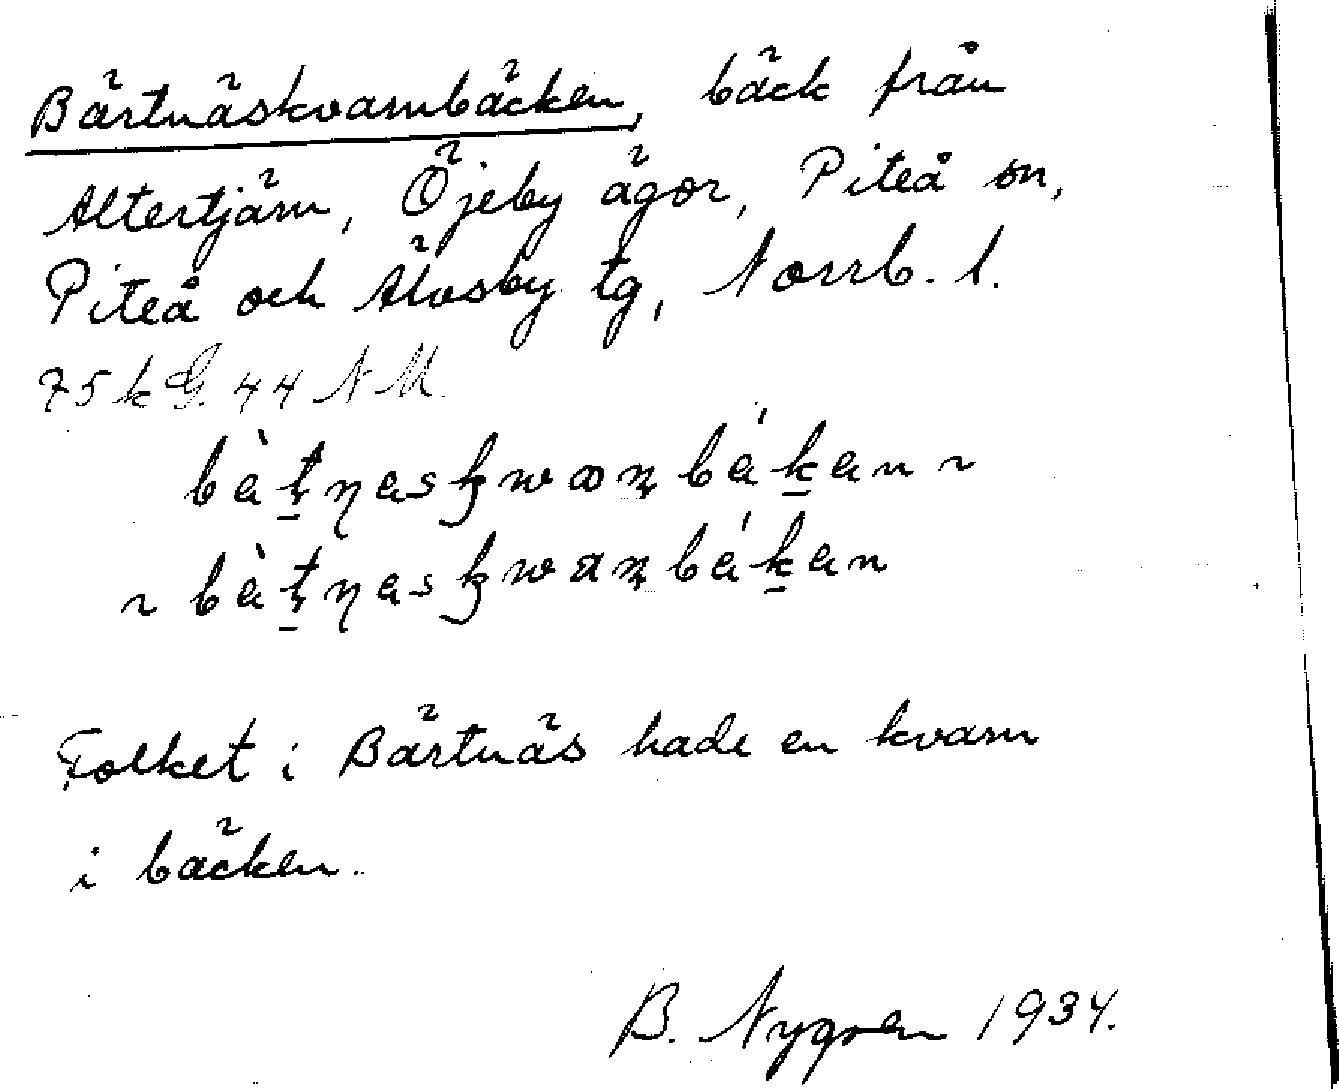 Bärtnäskvarnbäcken, bäck från
Altertjärn, Öjeby ägor, Piteå sn,
Piteå och Älvsby tg, Norrb. l.
75 k G. 44 N M.
bàt̠ɳasꝁwœɳbák̠an ~
~ bàt̠ɳasꝁwaɳbák̠an
Folket i Bärtnäs hade en kvarn
i bäcken.
B. Nygren 1934.